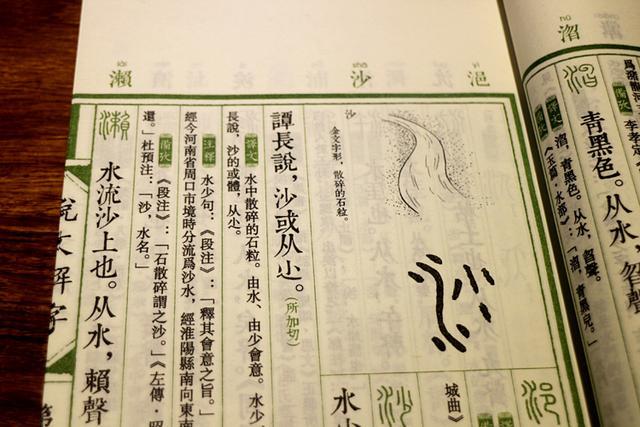 浥
沙
瀨
李孝定
青黑色。从水,曶聲
譯文
青黑色。从水,曶聲。
《玉篇·水部》:
青黑皃。」
城曲》
水少
沙
金文字形,散碎的石粒。
譚長說,沙或从尐。(所加切)
譯文 水中散碎的石粒。由水、由少會意。水少
長說,沙的或體,从尐。
注釋 水少句:《段注》:「釋其會意之旨。」
經今河南省周口市境時分流爲沙水,經淮陽縣南向東南
參攷 《段注》:「石散碎謂之沙。」《左傳·昭
還。」杜預注:「沙,水名。」
水流沙上也。从水,賴聲
說文解字
第